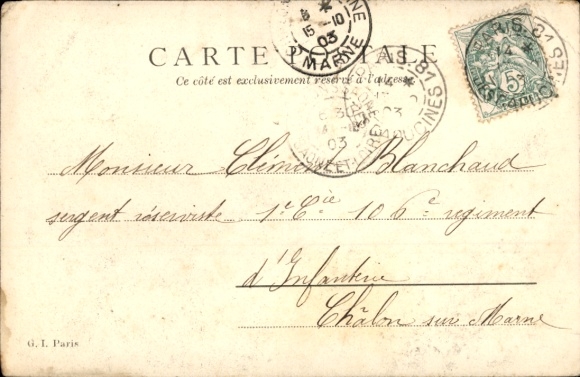 CARTE POSTALE
Ce côté est exclusivement réservé à l'adresse
15 -10
03
MARNE
PARIS. 81
CAPUCINES
03
5
Monsieur Clément Blanchaud
sergent réserviste 1re Cie 106e regiment
d'Infanterie
Châlon sur Marne
G. I. Paris